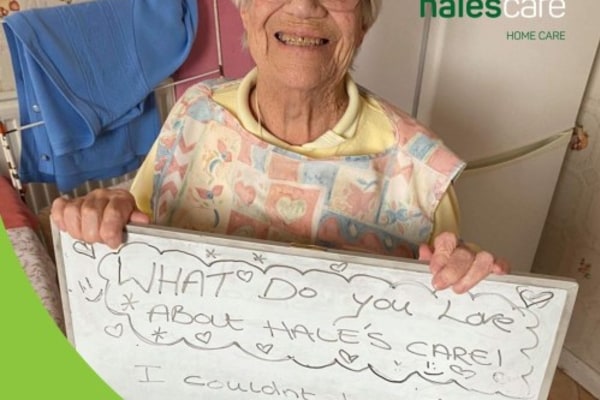 halescare
HOME CARE
WHAT DO you Love
ABOUT HALE'S CARE!
I couldn't